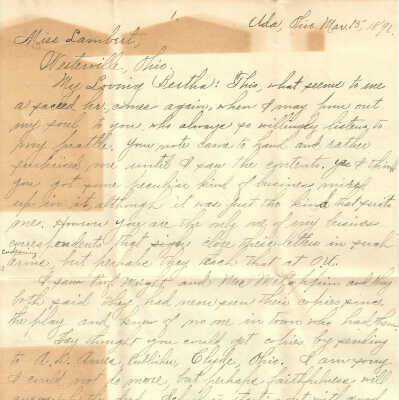 Ada, Ohio Mar. 15, 1892.
Miss Lambert,
Westerville, Ohio.
My Loving Bertha: This, what seems to me
a sacred hr. comes again, when I may pour out
my soul to you who always so willingly listens to
my prattle. Your note came to hand and rather
surprised me until I saw the contents. I think
you got some peculiar kind of business mixed
up in it, although it was just the kind that suits
me. However you are the only one of my business
correspondents that close their letters in such
endearing
terms, but perhaps they teach that at Ott.
I saw Prof. Wright and Mrs. and they
both said they had never seen their copies since
the play and knew of no one in town who had them.
thought you could get copies by sending
to A. D. Ames, Publisher, Clyde, Ohio. I am sorry
I could not do more, but perhaps faithfulness will